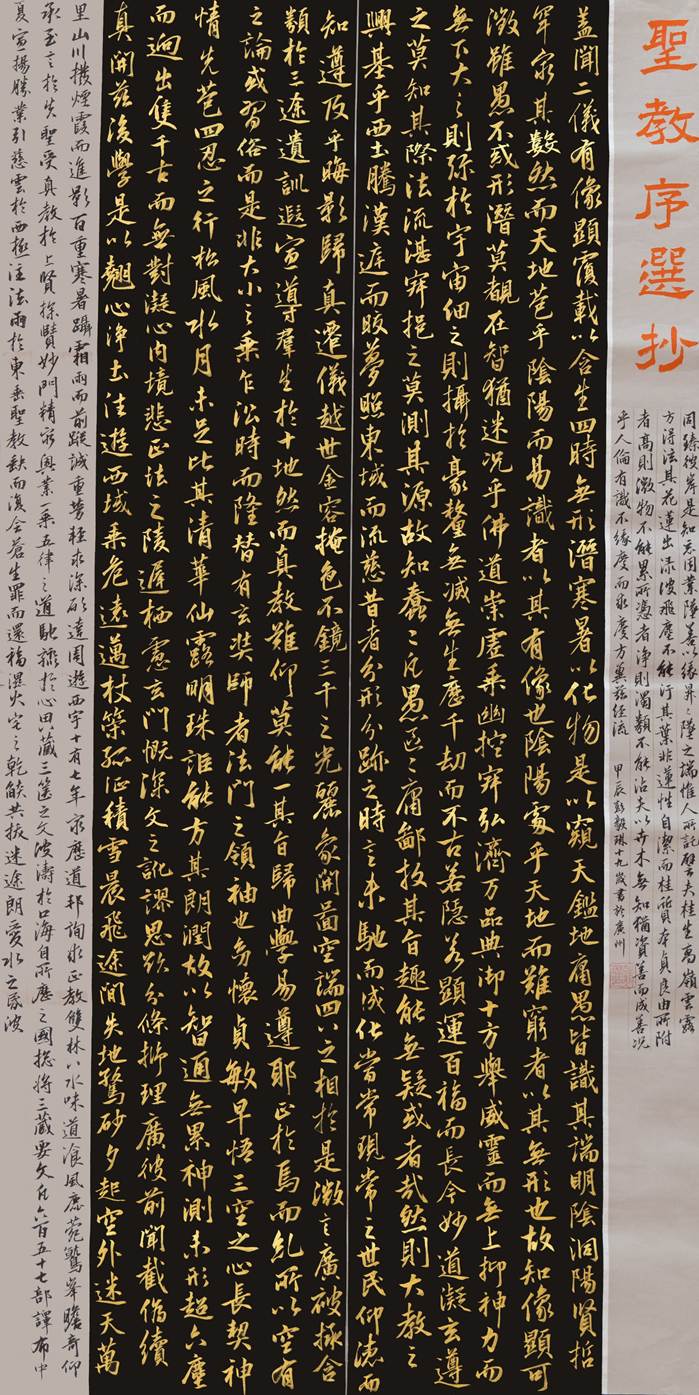 聖教序選抄
蓋聞二儀有像顯覆載以含生四時無形潛寒暑以化物是以窺天鑑地庸愚皆識其端明陰洞陽賢哲
罕窮其數然而天地苞乎陰陽而易識者以其有像也陰陽處乎天地而難窮者以其無形也故知像顯可
徵雖愚不惑形潛莫覩在智猶迷況乎佛道崇虛乘幽控寂弘濟万品典御十方舉威靈而無上抑神力而
無下大之則弥於宇宙細之則攝於豪氂無滅無生歷千劫而不古若隱若顯運百福而長今妙道凝玄遵
之莫知其際法流湛寂挹之莫測其源故知蠢蠢凡愚區區庸鄙投其旨趣能無疑或者哉然則大教之
興基乎西土騰漢庭而皎夢照東域而流慈昔者分形分跡之時言未馳而成化當常現常之世民仰德而
知遵及乎晦影歸真遷儀越世金容掩色不鏡三千之光麗象開圖空端四八之相於是微言廣被拯含
類於三途遺訓遐宣導群生於十地然而真教難仰莫能一其旨歸曲學易遵耶正於焉而糺所以空有
之論或習俗而是非大小之乘乍沿時而隆替有玄奘師者法門之領袖也幼懷貞敏早悟三空之心長契神
情先苞四忍之行松風水月未足比其清華仙露明珠詎能方其朗潤故以智通無累神測未形超六塵
而迥出隻千古而無對凝心內境悲正法之陵遲栖慮玄門慨深文之訛謬思欲分條析理廣彼前聞截偽續
真開茲後學是以翹心淨土往遊西域乘危遠邁杖策孤征積雪晨飛途間失地驚砂夕起空外迷天萬
里山川撥煙霞而進影百重寒暑躡霜雨而前蹤誠重勞輕求深願達周遊西宇十有七年窮歷道邦詢求正教雙林八水味道飡風鹿菀鷲峯瞻奇仰
承至言於先聖受真教於上賢探賾妙門精窮奧業一乘五律之道馳驟於心田八藏三篋之文波濤於口海自所歷之國總將三藏要文凡六百五十七部譯布中
夏宣揚勝業引慈雲於西極注法雨於東垂聖教缺而復全蒼生罪而還福濕火宅之乾燄共拔迷途朗愛水之昏波
同臻彼岸是知惡因業墜善以緣昇昇墜之端惟人所託譬夫桂生高嶺雲露
方得泫其花蓮出淥波飛塵不能汙其葉非蓮性自潔而桂質本貞良由所附
者高則微物不能累所憑者淨則濁類不能沾夫以卉木無知猶資善而成善況
乎人倫有識不緣慶而求慶方冀茲經流 甲辰彭毅琳十九歲書於廣州